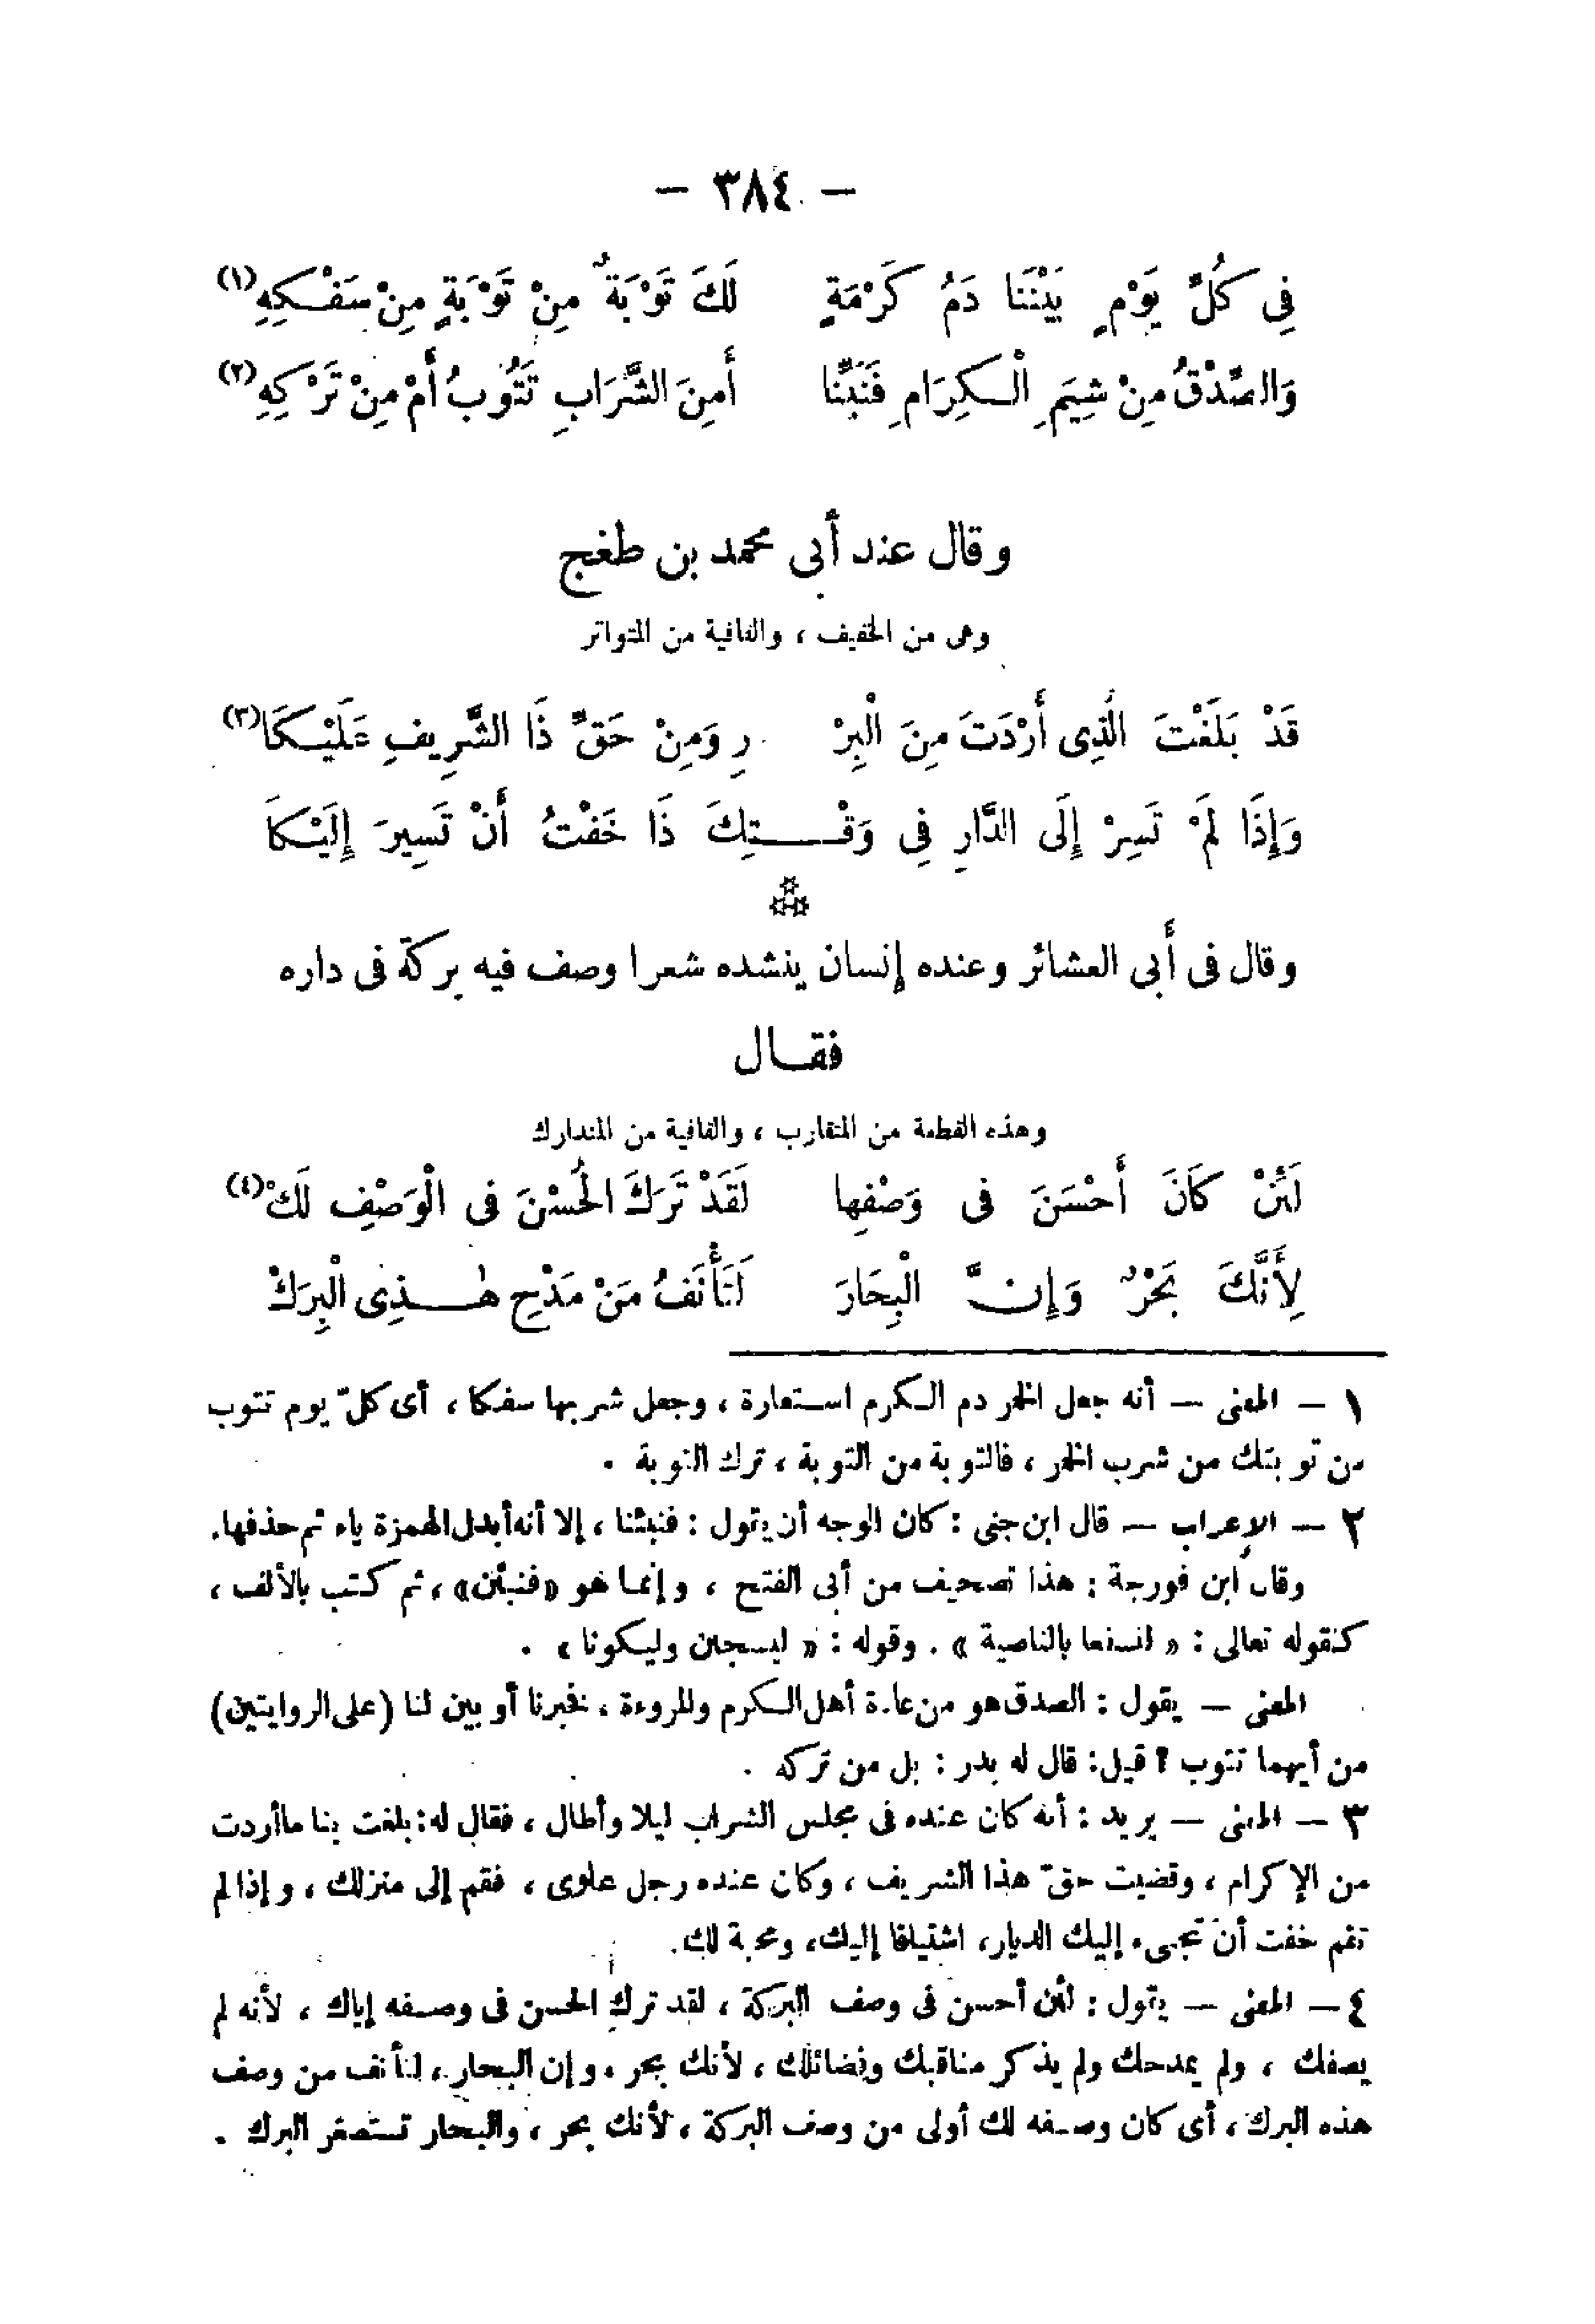 — ٣٨٤ —
فِى كُلِّ يَوْمٍ بَيْنَنَا دَمُ كَرْمَةٍ لَكَ تَوْبَةٌ مِنْ تَوْبَةٍ مِنْ سَفْكِهِ (١)
وَالصِّدْقُ مِنْ شِيَمِ الْكِرَامِ فَنَبِّنَا أَمِنَ الشَّرَابِ تَتُوبُ أَمْ مِنْ تَرْكِهِ (٢)
وقال عند أبى محمد بن طغج
وهى من الخفيف ، والقافية من المتواتر
قَدْ بَلَغْتَ الَّذِى أَرَدْتَ مِنَ الْبِرْ رِ وَمِنْ حَقِّ ذَا الشَّرِيفِ عَلَيْكَا (٣)
وَإِذَا لَمْ تَسِرْ إِلَى الدَّارِ فِى وَقْـتِكَ ذَا خَفْتُ أَنْ تَسِيرَ إِلَيْكَا
وقال فى أبى العشائر وعنده إنسان ينشده شعرا وصف فيه بركة فى داره
فقال
وهذه القطعة من المتقارب ، والقافية من المتدارك
لَئِنْ كَانَ أَحْسَنَ فى وَصْفِها لَقَدْ تَرَكَ الْحُسْنَ فى الْوَصْفِ لَكْ (٤)
لِأَنَّكَ بَحْرٌ وَإِنَّ الْبِحَارَ لَتَأْنَفُ مَنْ مَدْحِ هٰذِى الْبِرَكْ
١ — المعنى — أنه جعل الخمر دم الكرم استعارة ، وجعل شربها سفكا ، أى كلّ يوم تتوب
من توبتك من شرب الخمر ، فالتوبة من التوبة ، ترك التوبة .
٢ — الإعراب — قال ابن جنى : كان الوجه أن يقول : فنبئنا ، إلا أنه أبدل الهمزة ياء ثم حذفها.
وقال ابن فورجة : هذا تصحيف من أبى الفتح ، وإنما هو «فنبئن» ، ثم كتب بالألف ،
كقوله تعالى : « لنسفعا بالناصية » . وقوله : « ليسجنن وليكونا » .
المعنى — يقول : الصدق هو من عادة أهل الكرم والمروءة ، فخبرنا أو بين لنا (على الروايتين)
من أيهما تتوب ؟ قيل: قال له بدر : بل من تركه .
٣ — المعنى — يريد : أنه كان عنده فى مجلس الشراب ليلا وأطال ، فقال له: بلغت بنا ماأردت
من الإكرام ، وقضيت حقّ هذا الشريف ، وكان عنده رجل علوى ، فقم إلى منزلك ، وإذا لم
تقم خفت أن تجىء إليك الديار، اشتياقا إليك، ومحبة لك.
٤ — المعنى — يقول : لئن أحسن فى وصف البركة ، لقد ترك الحسن فى وصفه إياك ، لأنه لم
يصفك ، ولم يمدحك ولم يذكر مناقبك وفضائلك ، لأنك بحر ، وإن البحار ، لتأنف من وصف
هذه البرك ، أى كان وصفه لك أولى من وصف البركة ، لأنك بحر ، والبحار تستصغر البرك .